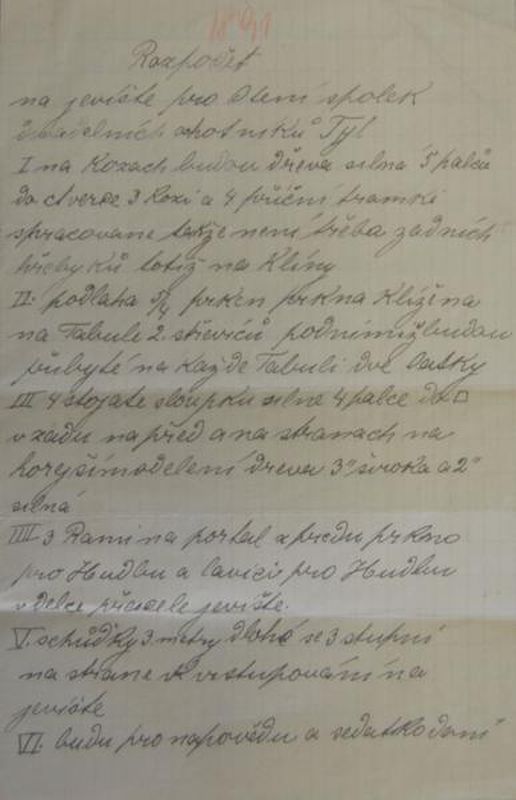 1891
Rozpočet
na jeviště pro Ctení spolek
divadelních ochotniků Tyl
I na Kozach budou dřeva silná 5 palců
do ctverce 3 Kozi a 4 příční tramki
spracovane takže není třeba zadních
hřebyků totiž na Klíny
II. podlaha 5/4 prken prkna Klížena
na Tabule 2. střeviců podnimiž budou
přibyté na každe Tabuli dvě latky
III 4 stojate sloupku silne 4 palce do □
v zadu napřed a na stranach na
horejším odelení dreva 3" široka a 2"
silná
IIII 3 Rami na portal z předu prkno
pro Hudbu a lavici pro Hudbu
v delce přicele jeviště.
V. schůdky 3 metry dlohé se 3 stupni
na strane k vstupování na
jeviste
VI. budu pro napovědu a sedatko